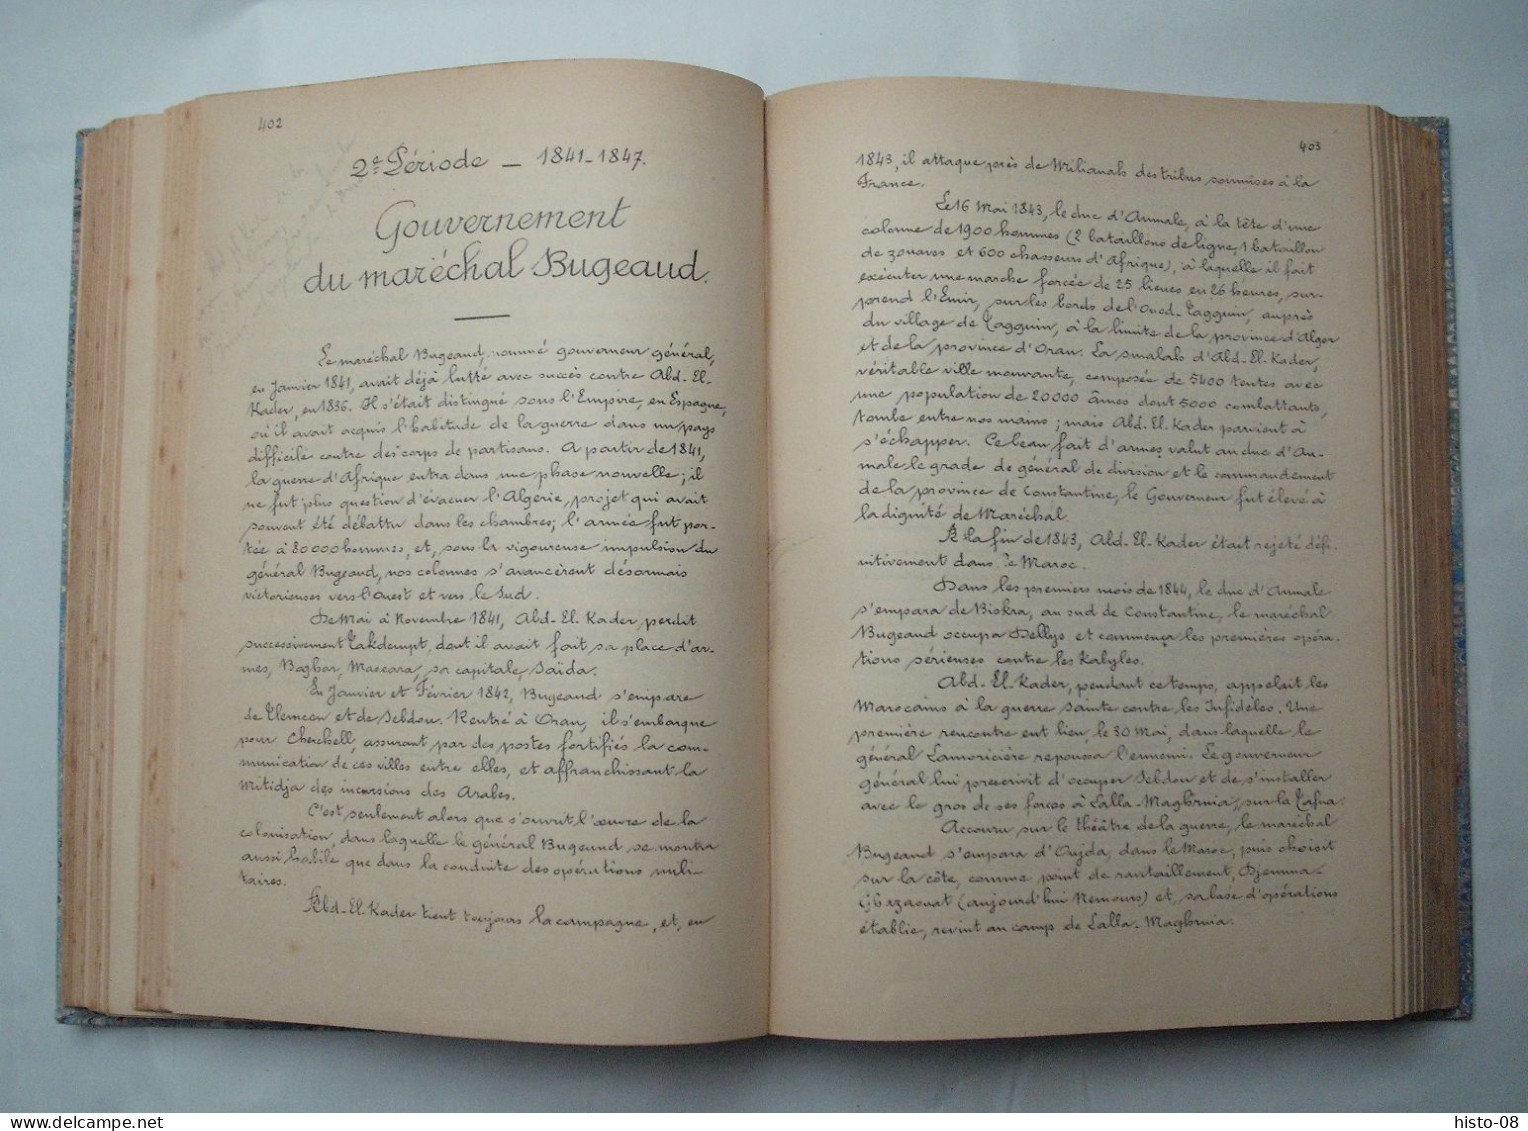 402
2e Période — 1841-1847.
Gouvernement
du maréchal Bugeaud.
Le maréchal Bugeaud, nommé gouverneur général,
en Janvier 1841, avait déjà lutté avec succès contre Abd-El-
Kader, en 1836. Il s'était distingué sous l'Empire, en Espagne,
où il avait acquis l'habitude de la guerre dans un pays
difficile contre des corps de partisans. A partir de 1841,
la guerre d'Afrique entra dans une phase nouvelle; il
ne fut plus question d'évacuer l'Algérie, projet qui avait
souvent été débattu dans les chambres; l'armée fut por-
tée à 80000 hommes, et, sous la vigoureuse impulsion du
général Bugeaud, nos colonnes s'avancèrent désormais
victorieuses vers l'Ouest et vers le Sud.
De Mai à Novembre 1841, Abd-El-Kader perdit
successivement Takdempt, dont il avait fait sa place d'ar-
mes, Boghar, Mascara, sa capitale, Saïda.
En Janvier et Février 1842, Bugeaud s'empare
de Tlemcen et de Sebdou. Rentré à Oran, il s'embarque
pour Cherchell, assurant par des postes fortifiés la com-
munication de ces villes entre elles, et affranchissant la
Mitidja des incursions des Arabes.
C'est seulement alors que s'ouvrit l'œuvre de la
colonisation dans laquelle le général Bugeaud se montra
aussi habile que dans la conduite des opérations mili-
taires.
Abd-El-Kader tient toujours la campagne, et, en
403
1843, il attaque près de Milianah des tribus soumises à la
France.
Le 16 Mai 1843, le duc d'Aumale, à la tête d'une
colonne de 1900 hommes (2 bataillons de ligne, 1 bataillon
de zouaves et 600 chasseurs d'Afrique), à laquelle il fait
exécuter une marche forcée de 25 lieues en 26 heures, sur-
prend l'Emir, sur les bords de l'Oued-Tagguin, auprès
du village de Tagguin, à la limite de la province d'Alger
et de la province d'Oran. La smalah d'Abd-El-Kader,
véritable ville mouvante, composée de 5400 tentes avec
une population de 20000 âmes dont 5000 combattants,
tombe entre nos mains; mais Abd-El-Kader parvient à
s'échapper. Ce beau fait d'armes valut au duc d'Au-
male le grade de général de division et le commandement
de la province de Constantine, le Gouverneur fut élevé à
la dignité de Maréchal.
A la fin de 1843, Abd-El-Kader était rejeté défi-
nitivement dans le Maroc.
Dans les premiers mois de 1844, le duc d'Aumale
s'empara de Biskra, au sud de Constantine, le maréchal
Bugeaud occupa Dellys et commença les premières opéra-
tions sérieuses contre les Kabyles.
Abd-El-Kader, pendant ce temps, appelait les
Marocains à la guerre sainte contre les Infidèles. Une
première rencontre eut lieu, le 30 Mai, dans laquelle le
général Lamoricière repoussa l'ennemi. Le gouverneur
général lui prescrivit d'occuper Sebdou et de s'installer
avec le gros de ses forces à Lalla-Maghrnia, sur la Tafna.
Accouru sur le théâtre de la guerre, le maréchal
Bugeaud s'empara d'Oujda, dans le Maroc, puis choisit
sur la côte, comme point de ravitaillement, Djemma-
Ghazaouat (aujourd'hui Nemours) et, sa base d'opérations
établie, revint au camp de Lalla-Maghrnia.
histo-08